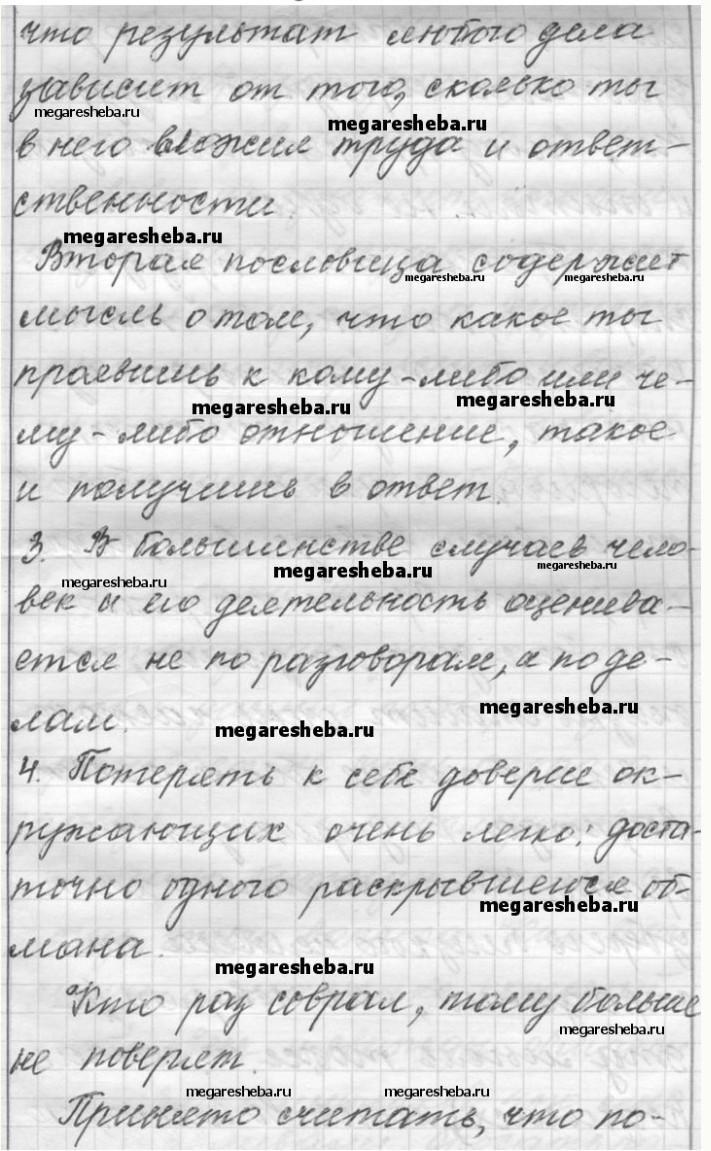 что результат любого дела
зависит от того, сколько ты
megaresheba.ru
megaresheba.ru
в него вложил труда и ответ-
ственности.
megaresheba.ru
Вторая пословица содержит
megaresheba.ru megaresheba.ru
мысль о том, что какое ты
проявишь к кому-либо или че-
megaresheba.ru megaresheba.ru
му-либо отношение, такое
и получишь в ответ.
3. В большинстве случаев чело-
megaresheba.ru megaresheba.ru
megaresheba.ru
век и его деятельность оценива-
ется не по разговорам, а по де-
megaresheba.ru
лам.
megaresheba.ru
4. Потерять к себе доверие ок-
ружающих очень легко: доста-
точно одного раскрывшегося об-
megaresheba.ru
мана.
megaresheba.ru
Кто раз соврал, тому больше
megaresheba.ru
не поверят.
megaresheba.ru megaresheba.ru
Принято считать, что по-